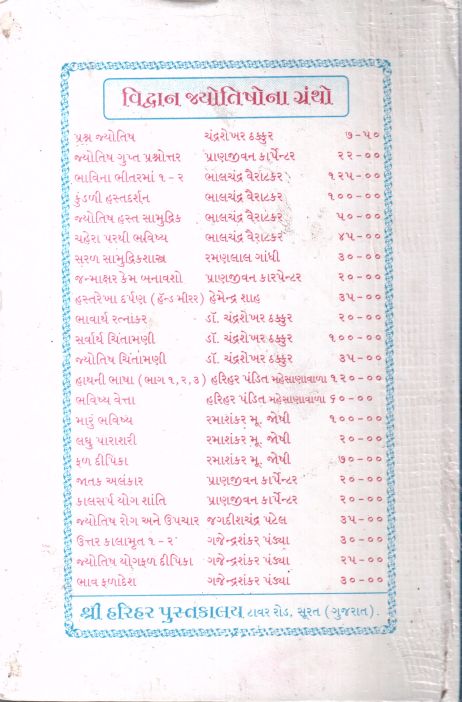 વિદ્વાન જ્યોતિષોના ગ્રંથો
પ્રશ્ન જ્યોતિષ ચંદ્રશેખર ઠક્કુર ૭-૫૦
જ્યોતિષ ગુપ્ત પ્રશ્નોત્તર પ્રાણજીવન કાર્પેન્ટર ૨૨-૦૦
ભાવિના ભીતરમાં ૧-૨ ભાલચંદ્ર વૈરાટકર ૧૨૫-૦૦
કુંડળી હસ્તદર્શન ભાલચંદ્ર વૈરાટકર ૧૦૦-૦૦
જ્યોતિષ હસ્ત સામુદ્રિક ભાલચંદ્ર વૈરાટકર ૫૦-૦૦
ચહેરા પરથી ભવિષ્ય ભાલચંદ્ર વૈરાટકર ૪૫-૦૦
સરળ સામુદ્રિકશાસ્ત્ર રમણલાલ ગાંધી ૩૦-૦૦
જન્માક્ષર કેમ બનાવશો પ્રાણજીવન કારપેન્ટર ૨૦-૦૦
હસ્તરેખા દર્પણ (હૅન્ડ મીરર) હેમેન્દ્ર શાહ ૩૫-૦૦
ભાવાર્થ રત્નાકર ડૉ. ચંદ્રશેખર ઠક્કુર ૨૦-૦૦
સર્વાર્થ ચિંતામણી ડૉ. ચંદ્રશેખર ઠક્કુર ૧૦૦-૦૦
જ્યોતિષ ચિંતામણી ડૉ. ચંદ્રશેખર ઠક્કુર ૩૫-૦૦
હાથની ભાષા (ભાગ ૧,૨,૩) હરિહર પંડિત મહેસાણાવાળા ૧૨૦-૦૦
ભવિષ્ય વેત્તા હરિહર પંડિત મહેસાણાવાળા ૬૦-૦૦
મારું ભવિષ્ય રમાશંકર મૂ. જોષી ૧૦૦-૦૦
લઘુ પારાશરી રમાશંકર મૂ. જોષી ૨૦-૦૦
ફળ દીપિકા રમાશંકર મૂ. જોષી ૭૦-૦૦
જાતક અલંકાર પ્રાણજીવન કાર્પેન્ટર ૨૦-૦૦
કાલસર્પ યોગ શાંતિ પ્રાણજીવન કાર્પેન્ટર ૨૦-૦૦
જ્યોતિષ રોગ અને ઉપચાર જગદીશચંદ્ર પટેલ ૩૫-૦૦
ઉત્તર કાલામૃત ૧-૨ ગજેન્દ્રશંકર પંડ્યા ૩૦-૦૦
જ્યોતિષ યોગફળ દીપિકા ગજેન્દ્રશંકર પંડ્યા ૨૫-૦૦
ભાવ ફળાદેશ ગજેન્દ્રશંકર પંડ્યા ૩૦-૦૦
શ્રી હરિહર પુસ્તકાલય, ટાવર રોડ, સૂરત (ગુજરાત).